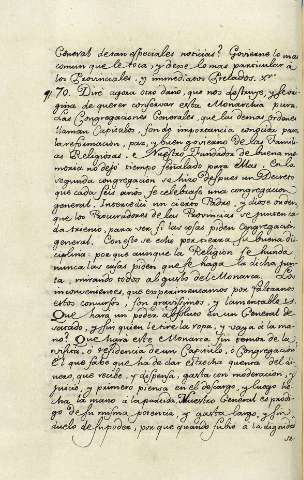 General deran especiales noticias? Govierne lo mas
comun que le toca, y dexe lo mas particular à
los Provinciales, y immediatos Prelados.
70. Diré agora otro daño, que nos destruye, y se ori-
gina de querer conservar esta Monarchia pura.
Las Congregaciones Generales, que las demas ordenes
llaman Capitulos, son de importancia conguida para
la reformacion, paz, y buen govierno de las Fami-
lias Religiosas, è Nuestro Fundador de buena me-
moria no dejó tiempo señalado para ellas. En la
segunda congregacion se hizo despues un Decreto
que cada seis años se celebrase una congregacion
general. Intervedió un cierto Padre, y dióse orden
que los Procuradores de las Provincias se junten ca-
da trienio, para ver si las cosas piden Congregacion
general. Con esto se echó por tierra su buena di-
ciplina; porque aunque la Religion se hunda
nunca las cosas piden que se haga la dicha jun-
ta, mirando todos al gusto del Monarca. Los
inconvenientes, que experimentamos por faltarnos
estos concursos, son gravissimos, y lamentables.
Que hara un poder absoluto en un General de-
satado, y sin quien le tire la ropa, y vaya à la ma-
no? Que hara este Monarca sin temor de la
visita, y residencia de un Capitulo, ò Congregacion?
El que sabe que ha de dar estrecha quenta del di-
nero, que recibe, y dispensa, gasta con moderacion, y
juicio, y primero piensa en el descargo, y luego e-
cha la mano à la partida. Nuestro General es pródi-
go de su misma potencia, y gasta largo, y sin
duelo de su poder, porque quando subió à la dignidad
se